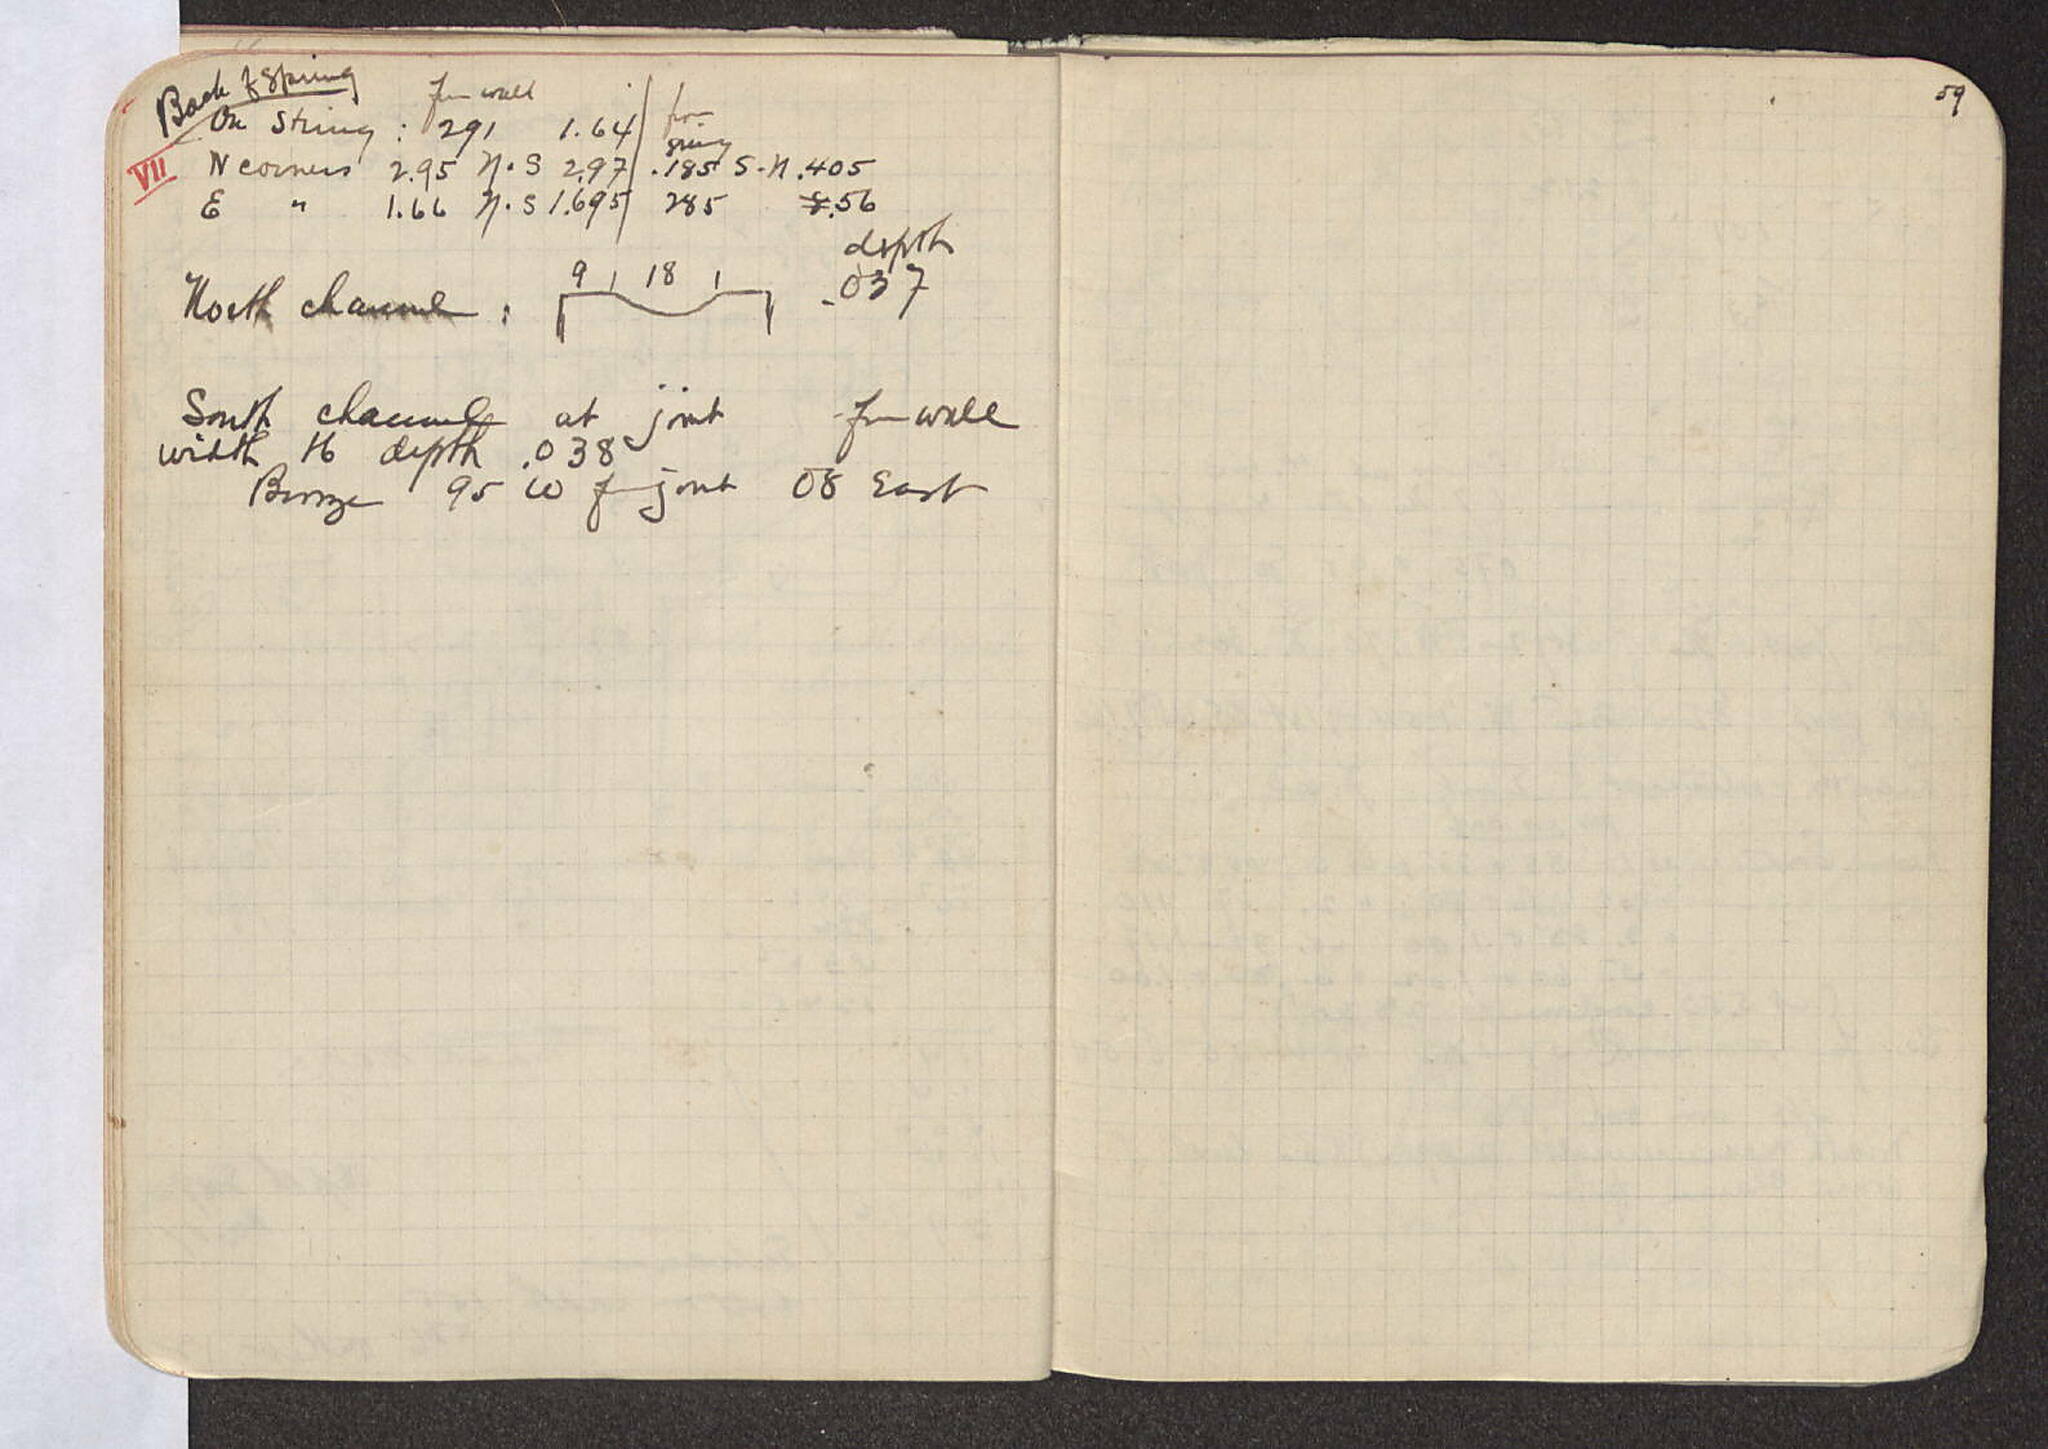 Back of Spring
fm wall
On String : 291 1.64 fm
spring
VII N corners 2.95 N.S 2.97 .185 S.N .405
E " 1.66 N.S 1.695 285 .56
depth
9 18 .037
North channel :
South channel at joint fm wall
width 16 depth .038
Bronze 95 W fm joint 08 East
59